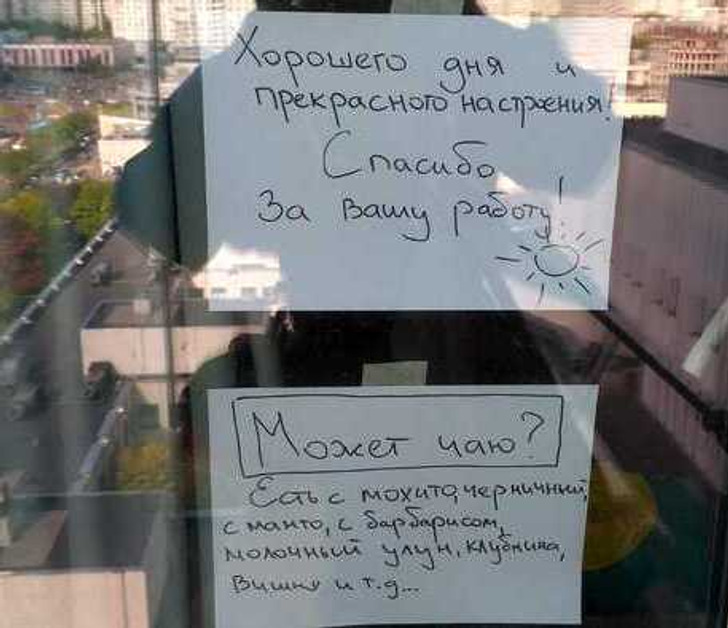 Хорошего дня и
прекрасного настроения!
Спасибо
За вашу работу!
Может чаю?
Есть с мохито, черничный,
с манго, с барбарисом,
молочный улун, клубника,
вишня и т.д...